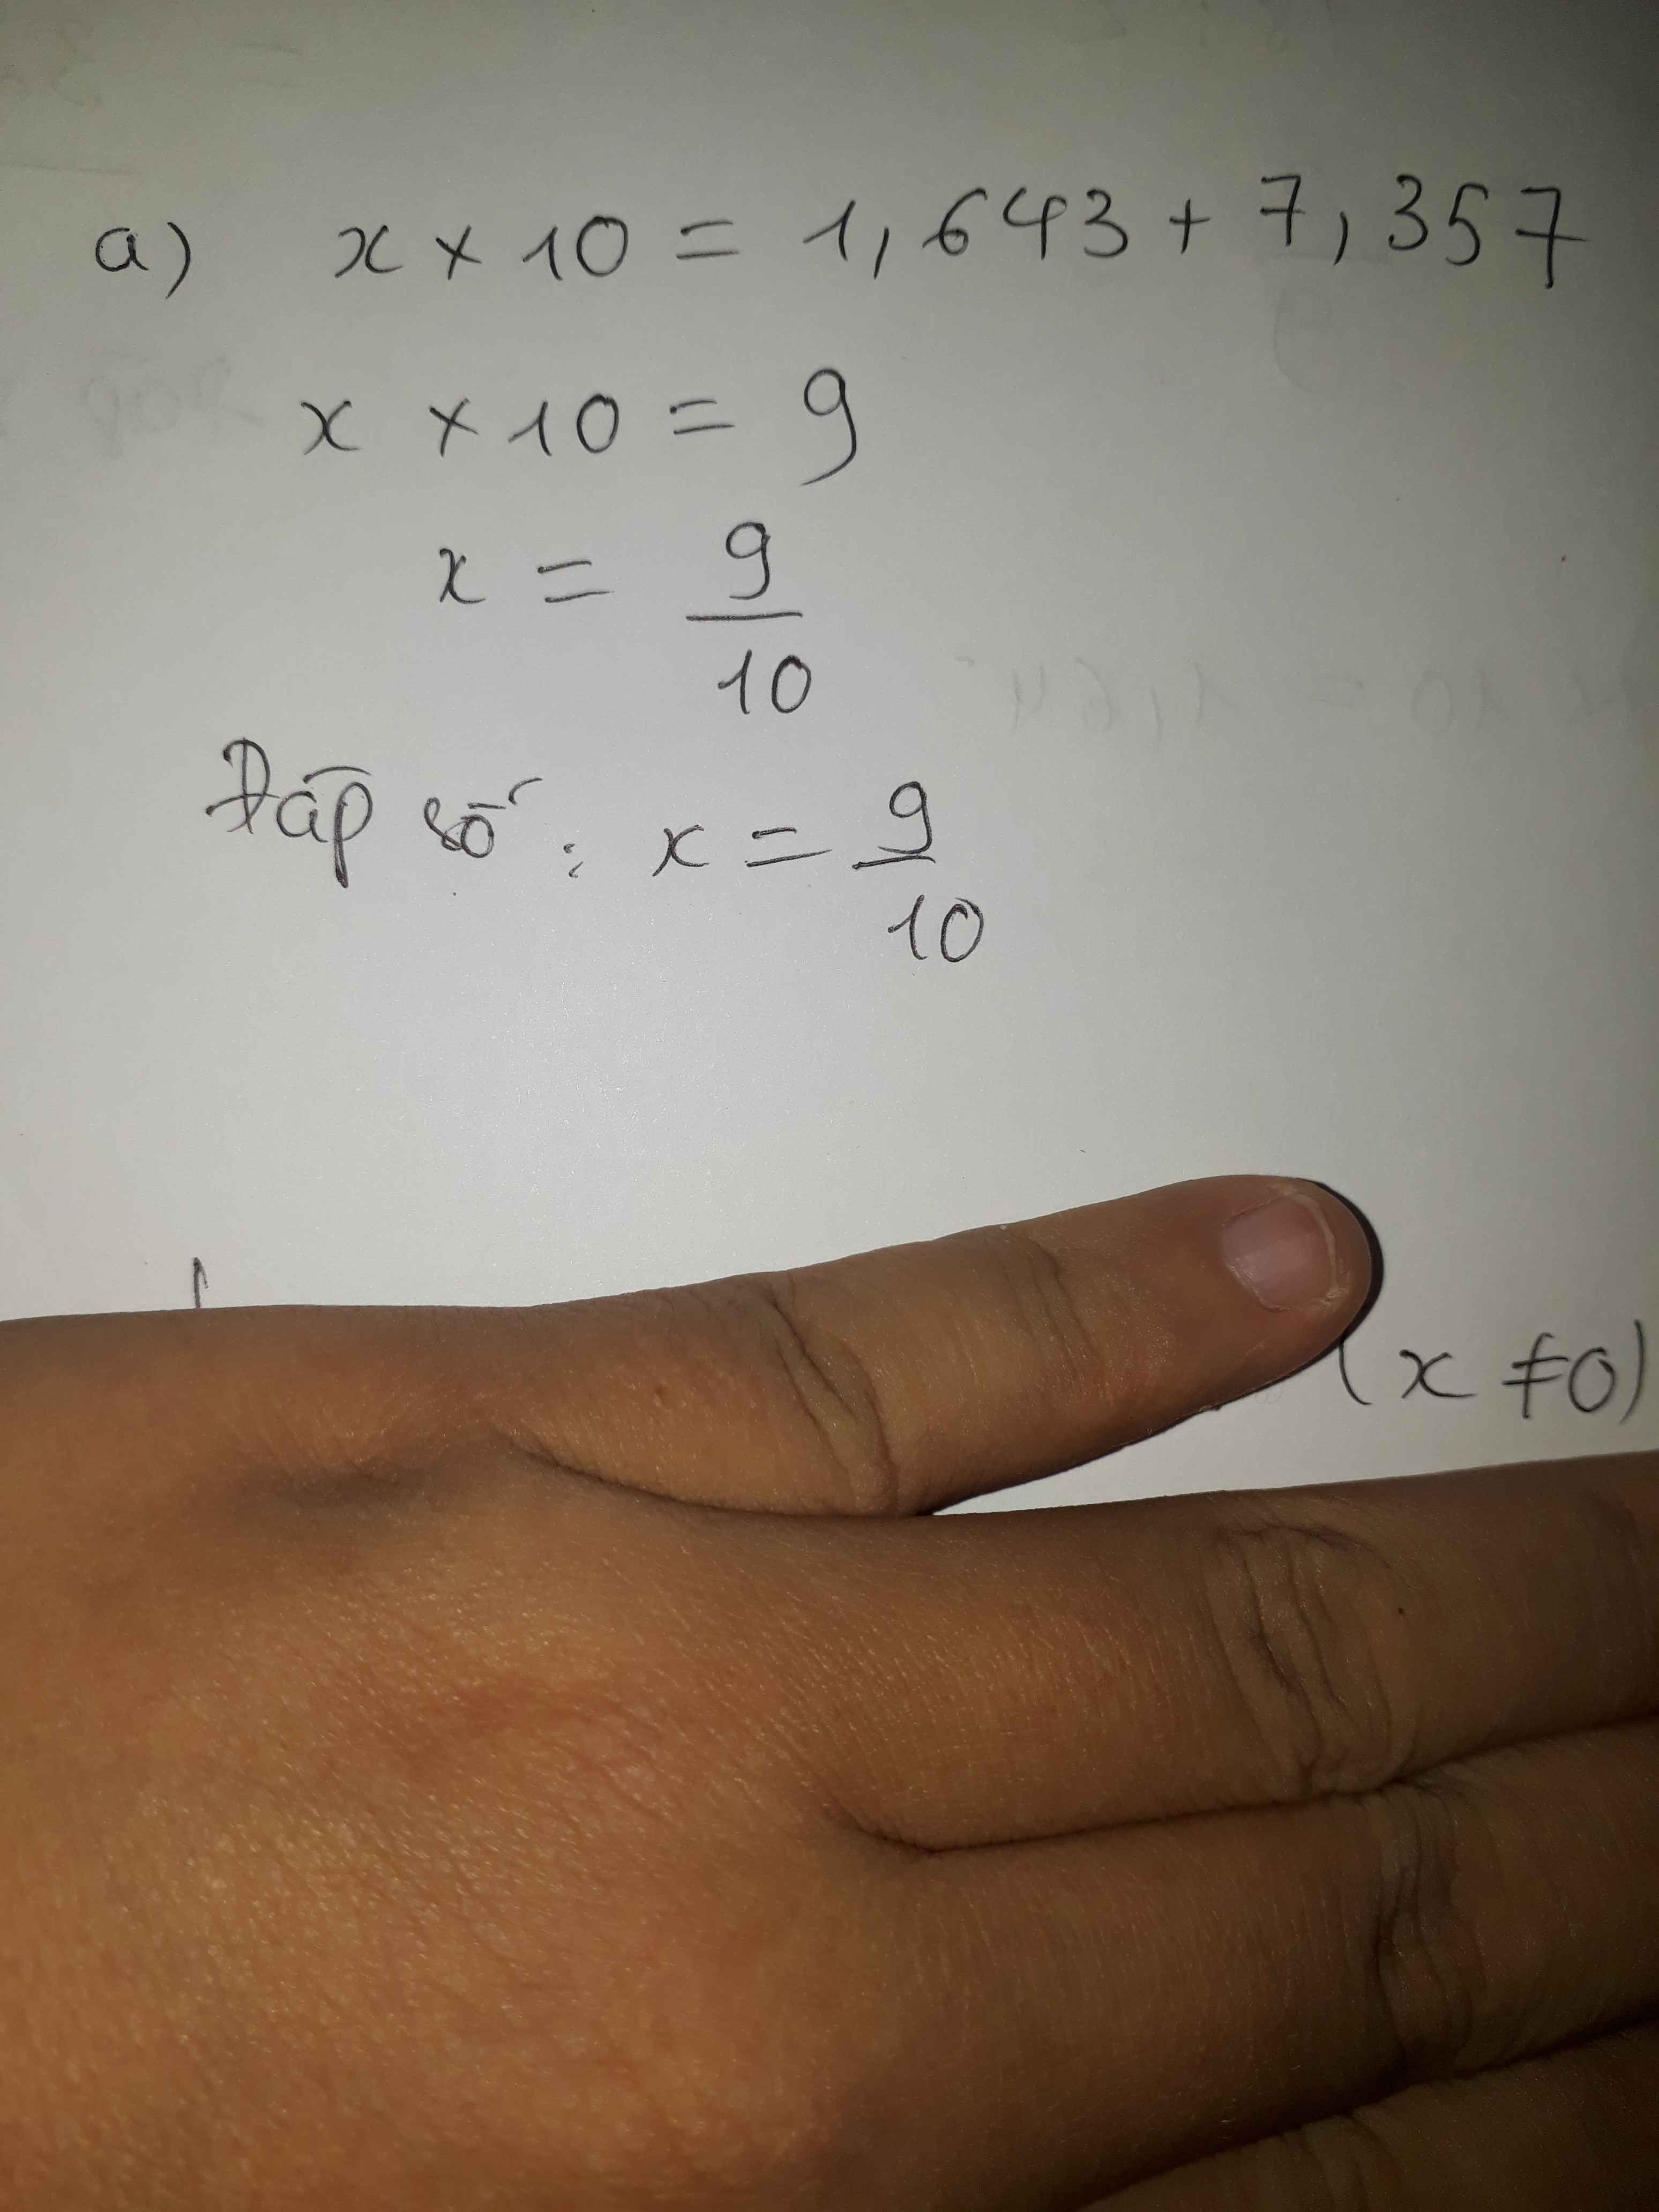 a) x × 10 = 1,643 + 7,357
x × 10 = 9
x = 9/10
Đáp số: x = 9/10
(x ≠ 0)